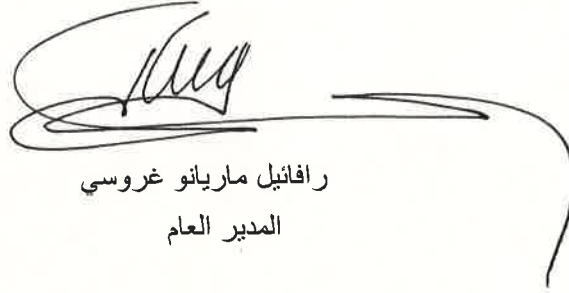 رافائيل ماريانو غروسي
المدير العام